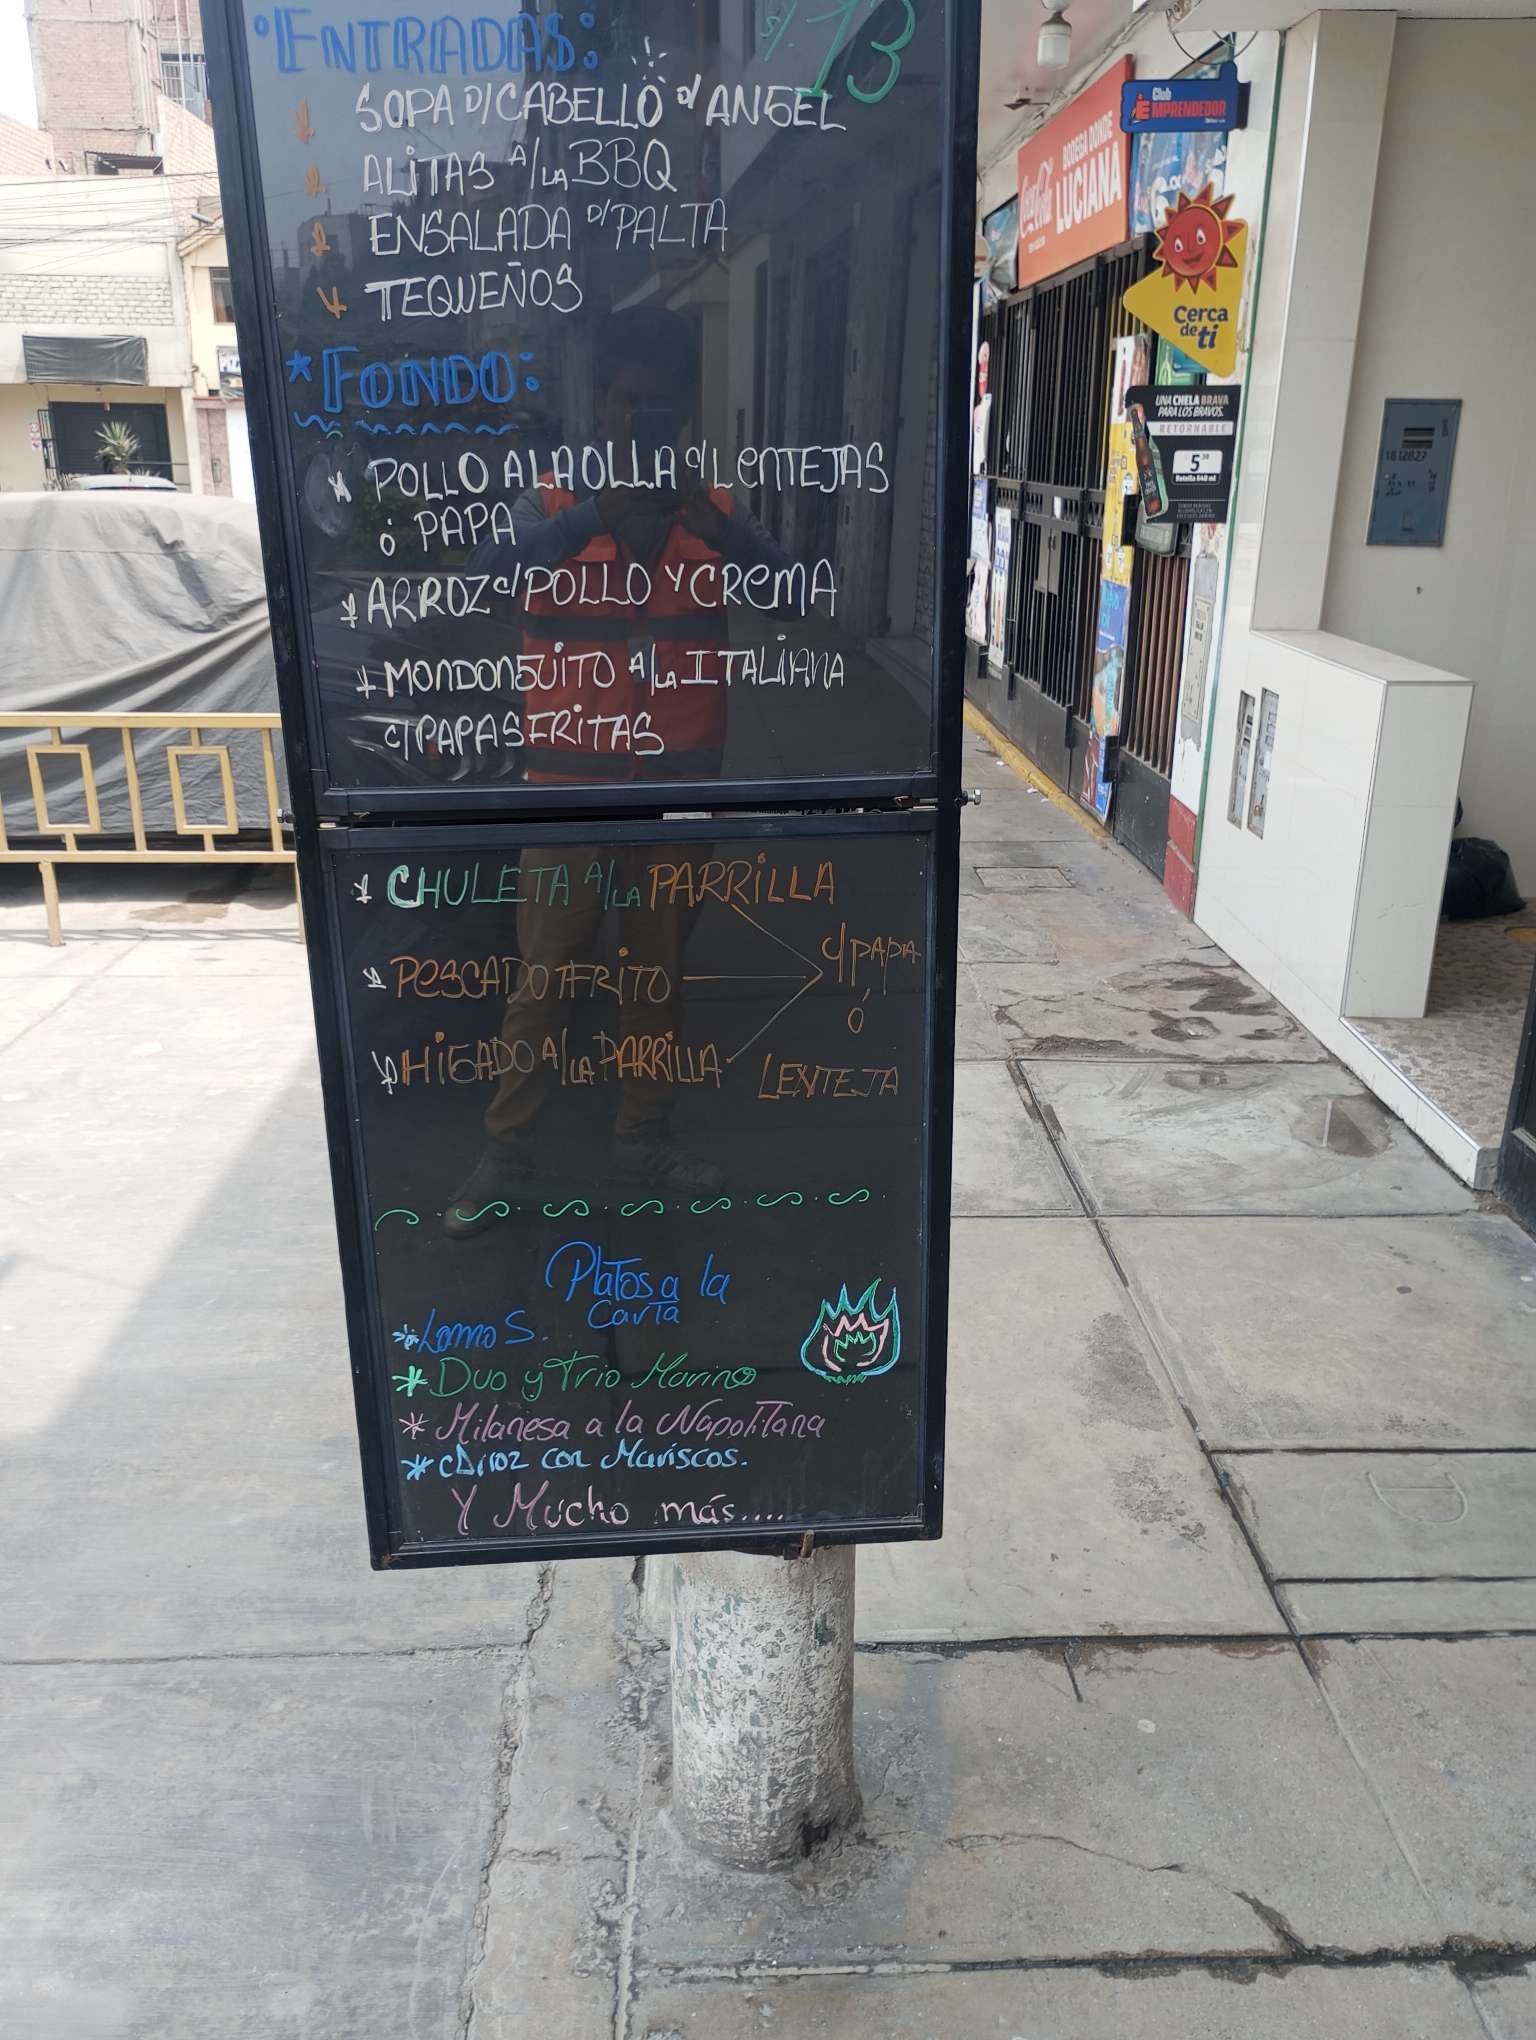 °ENTRADAS:
S/. 13
SOPA D/CABELLO D/ANGEL
ALITAS A/LA BBQ
ENSALADA D/PALTA
TEQUEÑOS
* FONDO:
* POLLO A LA OLLA C/LENTEJAS
ó PAPA
* ARROZ C/POLLO Y CREMA
* MONDONGUITO A/LA ITALIANA
C/PAPAS FRITAS
* CHULETA A/LA PARRILLA
* PESCADO FRITO
* HIGADO A/LA PARRILLA
C/PAPA
Ó
LENTEJA
Platos a la
Carta
* Lomo S.
* Duo y Trio Marino
* Milanesa a la Napolitana
* Arroz con Mariscos.
Y Mucho más....
Club
EMPRENDEDOR
Coca-Cola
BODEGA DONDE
LUCIANA
Cerca
de ti
UNA CHELA BRAVA
PARA LOS BRAVOS.
RETORNABLE
5.50
Botella 640 ml
1812827